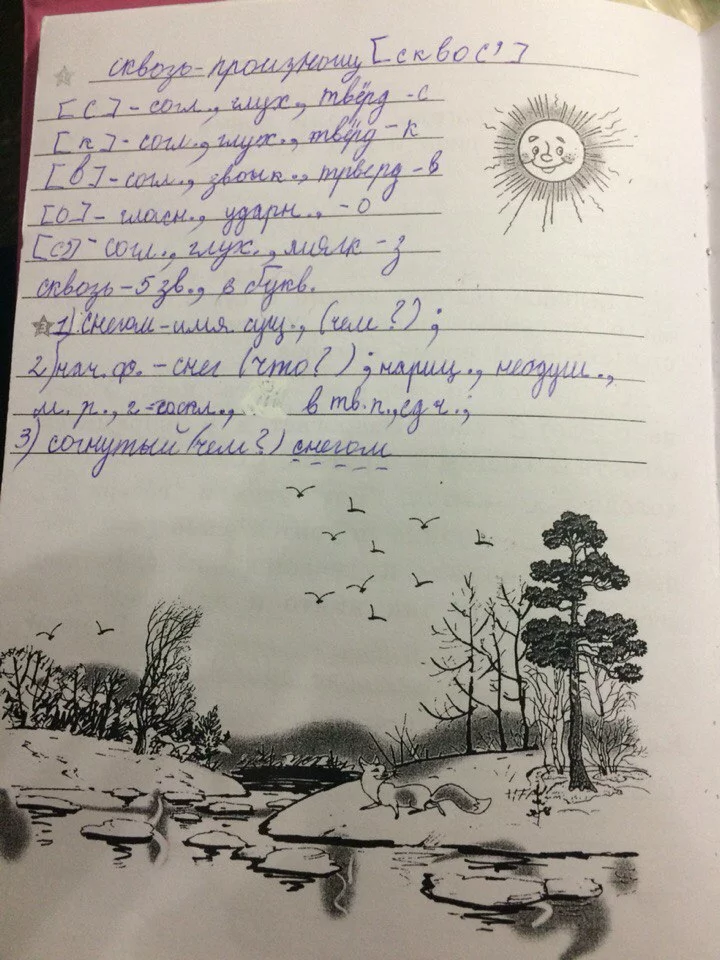 сквозь-произношу [сквос']
[с]-согл., глух., твёрд -с
[к]-согл., глух., твёрд-к
[в]-согл., звонк., трверд-в
[о]-гласн., ударн., -о
[с']-согл., глух., мягк -з
сквозь-5 зв., 6 букв.
1) снегом-имя сущ., (чем?);
2) нач. ф. - снег (что?); нариц., неодуш.,
м. р., 2-ое скл., в тв. п., ед. ч.;
3) согнутый (чем?) снегом